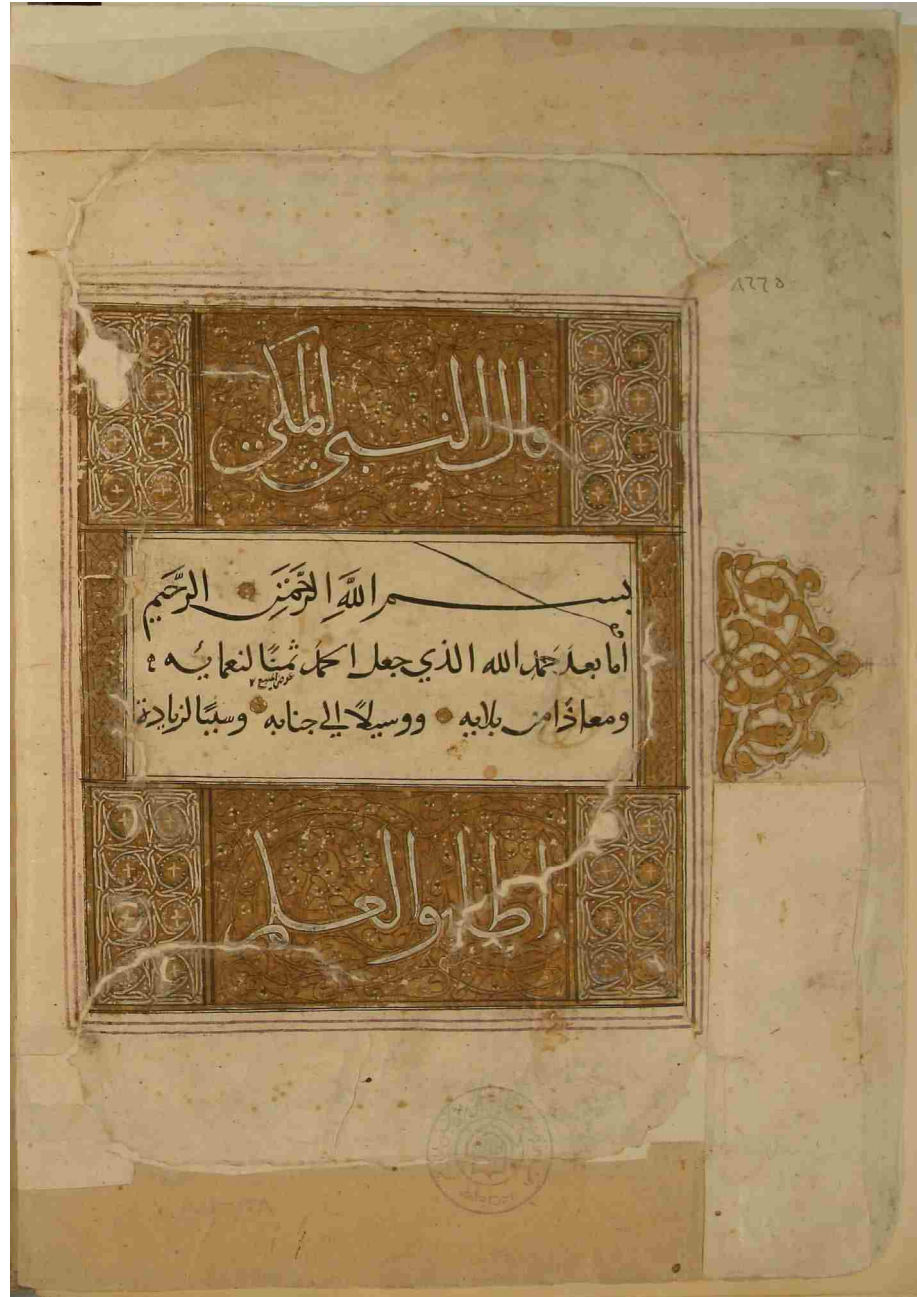 ٨٢٢٥
قال النبي المكي
بسم الله الرَّحْمٰنِ الرَّحِيم
أما بعد حمد الله الذي جعل الحمد ثمنًا لنعمائه
ومعاذًا من بلايه ووسيلًا إلى جنابه وسببًا لزيادة
اطلبو العلم